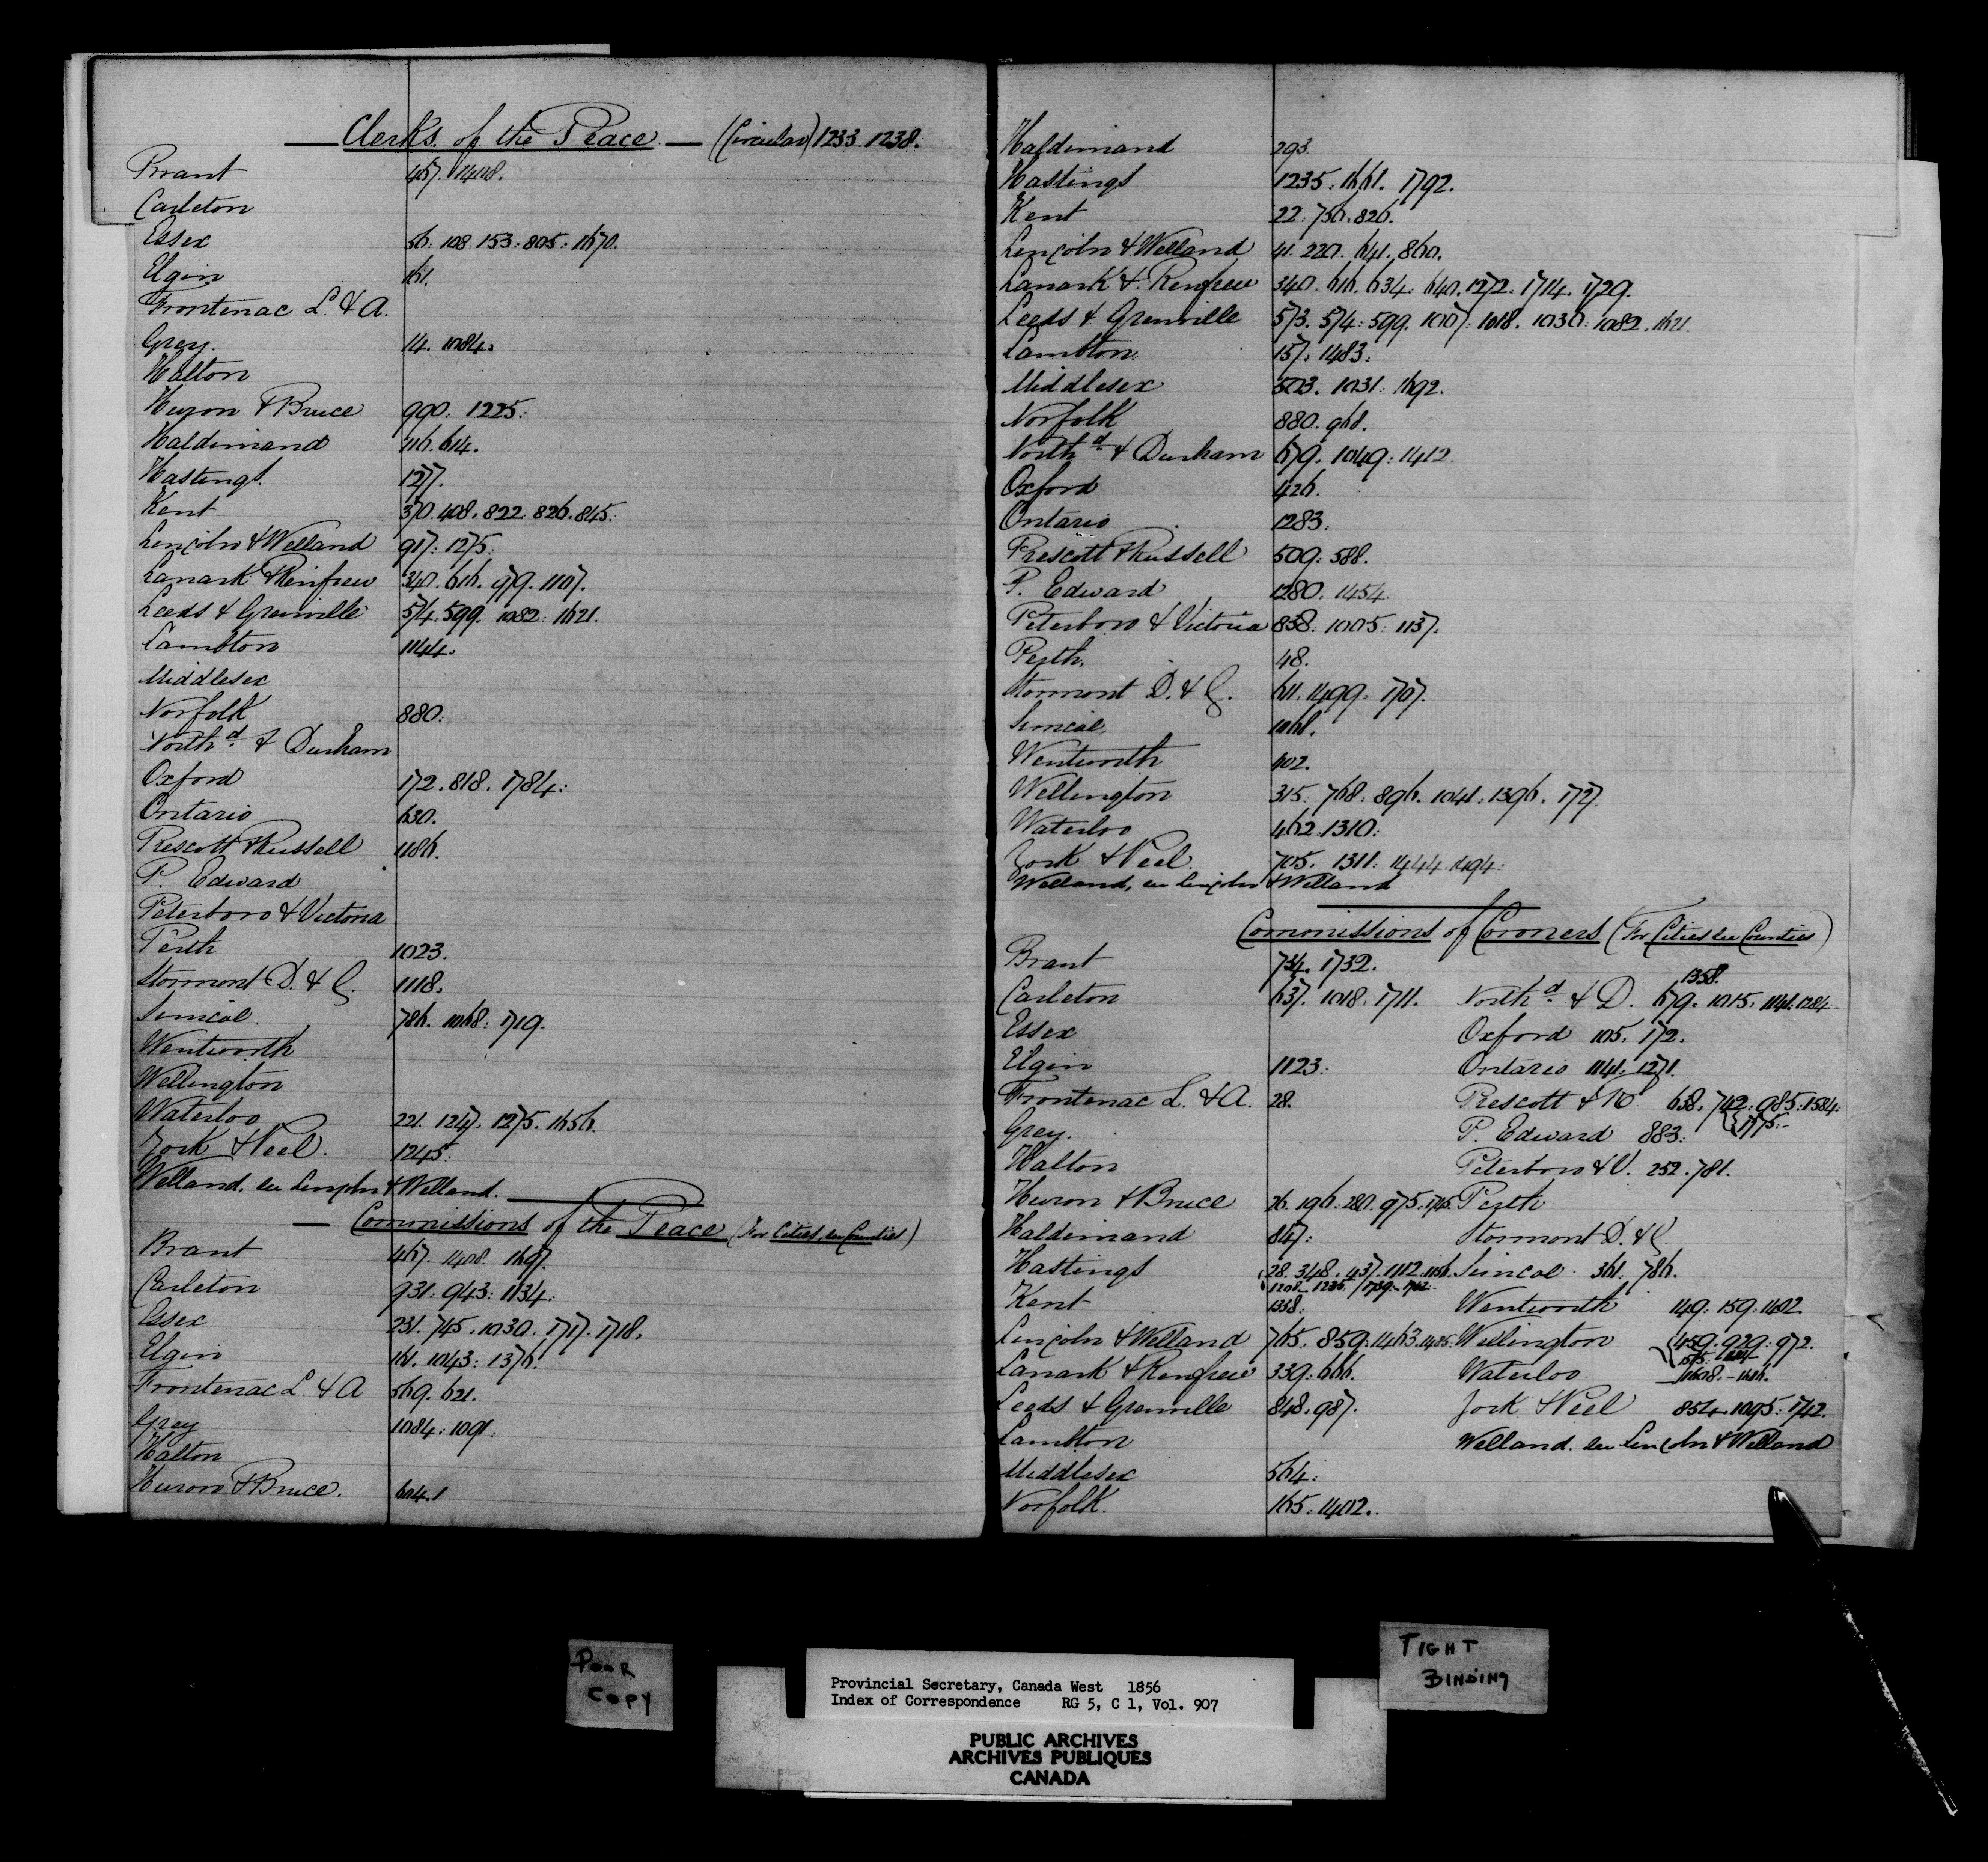 Clerks of the Peace — (Circular) 1233. 1238.
Brant 467. 1408.
Carleton
Essex 56. 108. 153: 805: 1670.
Elgin 161.
Frontenac L. & A.
Grey. 14. 1084.
Halton
Huron & Bruce 990: 1225:
Haldimand 116. 614.
Hastings. 1277.
Kent 370. 408. 822. 826. 845.
Lincoln & Welland 917: 1275:
Lanark & Renfrew 340. 616. 979. 1107.
Leeds & Grenville 574. 599. 1082: 1621.
Lambton 1144.
Middlesex
Norfolk 880:
North.d & Durham
Oxford 172. 818. 1784:
Ontario 630.
Prescott & Russell 1186.
P. Edward
Peterboro & Victoria
Perth 1023.
Stormont D. & G. 1118.
Simcoe. 786. 1068: 1719.
Wentworth
Wellington
Waterloo 221. 1247. 1275. 1656.
York & Peel. 1245:
Welland. see Lincoln & Welland.
— Commissions of the Peace (For Cities, see Counties)
Brant 467. 1408. 1697.
Carleton 931: 943: 1134:
Essex 231. 745. 1030. 1717. 1718.
Elgin 161. 1043: 1376.
Frontenac L. & A 569. 621.
Grey 1084: 1091:
Halton
Huron & Bruce. 604.
Haldimand 293.
Hastings 1235: 1661. 1792.
Kent 22: 756. 826.
Lincoln & Welland 41. 220. 641. 860.
Lanark & Renfrew 340. 616. 634: 640. 1272. 1714. 1729.
Leeds & Grenville 573. 574: 599. 1007: 1018. 1030: 1082. 1621.
Lambton 157. 1483:
Middlesex 503. 1031. 1692.
Norfolk 880. 968.
North.d & Durham 679. 1049: 1412.
Oxford 426.
Ontario 1283.
Prescott & Russell 509: 588.
P. Edward 1280. 1454.
Peterboro & Victoria 838. 1005: 1137.
Perth. 48.
Stormont D. & G. 611. 1499. 1707.
Simcoe, 1068.
Wentworth 402.
Wellington 315: 768: 896. 1041: 1396. 1727.
Waterloo 462. 1310:
York & Peel. 705. 1311: 1444. 1494:
Welland, see Lincoln & Welland
Commissions of Coroners (For Cities see Counties)
Brant 734. 1732.
Carleton 637. 1018. 1711. North.d & D. 679. 1015. 1141. 1284 1358.
Essex Oxford 105. 172.
Elgin 1123: Ontario 1141: 1271.
Frontenac L. & A. 28. Prescott & R 638. 742. 985: 1584:
Grey. P. Edward 883: 1775:
Halton Peterboro & V. 252. 781.
Huron & Bruce 26. 196. 280. 975. 1715. Perth
Haldimand 847: Stormont D. & G
Hastings 28. 348. 437. 1112. 1156. Simcoe 361. 786.
1208. 1236. 1739. 1762.
Kent 1338: Wentworth 149: 159: 1402
Lincoln & Welland 765. 859: 1463. 1485: Wellington 459: 929: 972.
Lanark & Renfrew 339: 666. Waterloo 1608. - 1616.
Leeds & Grenville 848. 987. York & Peel 854. 1095: 1742.
Lambton Welland. see Lincoln & Welland
Middlesex 564:
Norfolk. 165: 1402.
POOR
COPY
TIGHT
BINDING
Provincial Secretary, Canada West 1856
Index of Correspondence RG 5, C 1, Vol. 907
PUBLIC ARCHIVES
ARCHIVES PUBLIQUES
CANADA